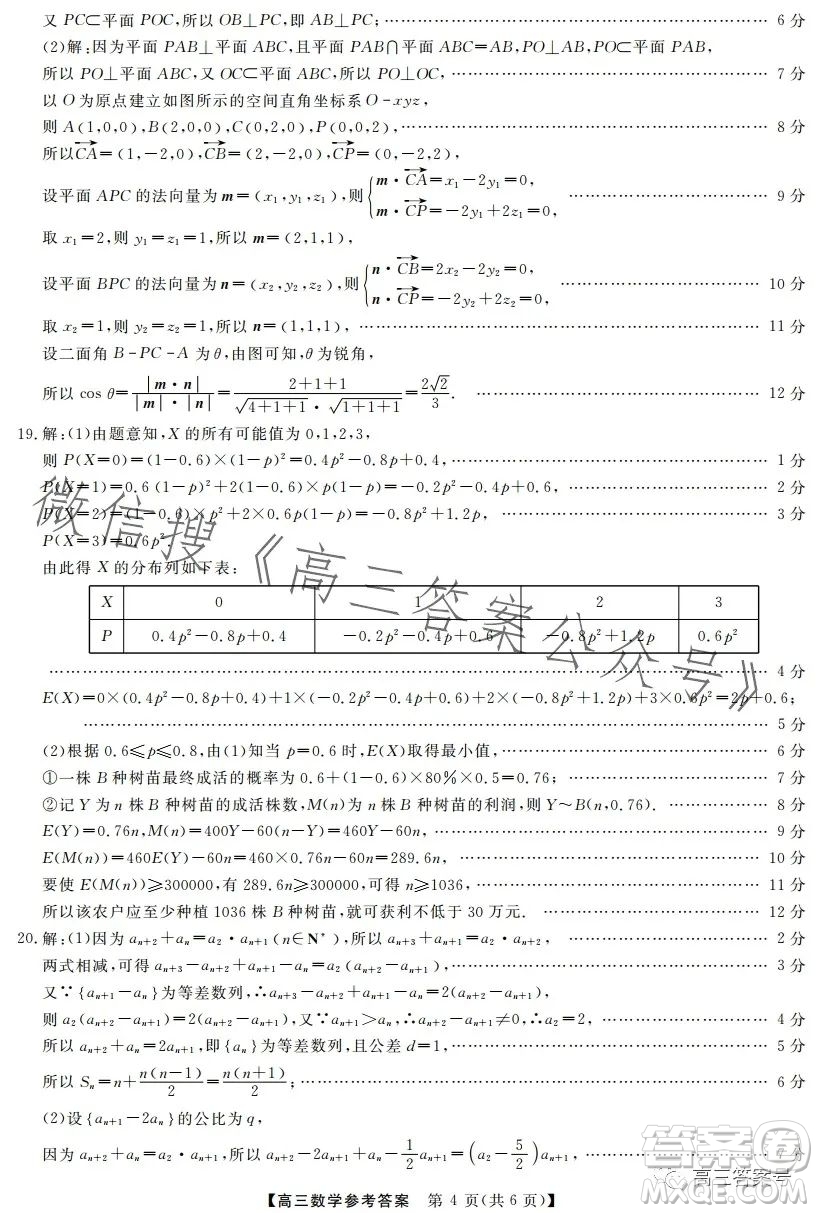 又 PC⊂平面 POC,所以 OB⊥PC,即 AB⊥PC; …… 6 分
(2)解:因为平面 PAB⊥平面 ABC,且平面 PAB∩平面 ABC=AB,PO⊥AB,PO⊂平面 PAB,
所以 PO⊥平面 ABC,又 OC⊂平面 ABC,所以 PO⊥OC, …… 7 分
以 O 为原点建立如图所示的空间直角坐标系 O-xyz,
则 A(1,0,0),B(2,0,0),C(0,2,0),P(0,0,2), …… 8 分
所以CA=(1,-2,0),CB=(2,-2,0),CP=(0,-2,2),
设平面 APC 的法向量为 m=(x₁,y₁,z₁),则{m·CA=x₁-2y₁=0, m·CP=-2y₁+2z₁=0, …… 9 分
取 x₁=2,则 y₁=z₁=1,所以 m=(2,1,1),
设平面 BPC 的法向量为 n=(x₂,y₂,z₂),则{n·CB=2x₂-2y₂=0, n·CP=-2y₂+2z₂=0, …… 10 分
取 x₂=1,则 y₂=z₂=1,所以 n=(1,1,1), …… 11 分
设二面角 B-PC-A 为 θ,由图可知,θ为锐角,
所以 cos θ=|m·n|/(|m|·|n|)=(2+1+1)/(√(4+1+1)·√(1+1+1))=2√2/3. …… 12 分
19.解:(1)由题意知,X 的所有可能值为 0,1,2,3,
则 P(X=0)=(1-0.6)×(1-p)²=0.4p²-0.8p+0.4, …… 1 分
P(X=1)=0.6(1-p)²+2(1-0.6)×p(1-p)=-0.2p²-0.4p+0.6, …… 2 分
P(X=2)=(1-0.6)×p²+2×0.6p(1-p)=-0.8p²+1.2p, …… 3 分
P(X=3)=0.6p².
由此得 X 的分布列如下表:
X 0 1 2 3
P 0.4p²-0.8p+0.4 -0.2p²-0.4p+0.6 -0.8p²+1.2p 0.6p²
…… 4 分
E(X)=0×(0.4p²-0.8p+0.4)+1×(-0.2p²-0.4p+0.6)+2×(-0.8p²+1.2p)+3×0.6p²=2p+0.6;
…… 5 分
(2)根据 0.6≤p≤0.8,由(1)知当 p=0.6 时,E(X)取得最小值, …… 6 分
①一株 B 种树苗最终成活的概率为 0.6+(1-0.6)×80%×0.5=0.76; …… 7 分
②记 Y 为 n 株 B 种树苗的成活株数,M(n)为 n 株 B 种树苗的利润,则 Y~B(n,0.76). …… 8 分
E(Y)=0.76n,M(n)=400Y-60(n-Y)=460Y-60n, …… 9 分
E(M(n))=460E(Y)-60n=460×0.76n-60n=289.6n, …… 10 分
要使 E(M(n))≥300000,有 289.6n≥300000,可得 n≥1036, …… 11 分
所以该农户应至少种植 1036 株 B 种树苗,就可获利不低于 30 万元. …… 12 分
20.解:(1)因为 aₙ₊₂+aₙ=a₂·aₙ₊₁(n∈N*),所以 aₙ₊₃+aₙ₊₁=a₂·aₙ₊₂, …… 2 分
两式相减,可得 aₙ₊₃-aₙ₊₂+aₙ₊₁-aₙ=a₂(aₙ₊₂-aₙ₊₁), …… 3 分
又∵{aₙ₊₁-aₙ}为等差数列,∴aₙ₊₃-aₙ₊₂+aₙ₊₁-aₙ=2(aₙ₊₂-aₙ₊₁),
则 a₂(aₙ₊₂-aₙ₊₁)=2(aₙ₊₂-aₙ₊₁),又∵aₙ₊₁>aₙ,∴aₙ₊₂-aₙ₊₁≠0,∴a₂=2, …… 4 分
所以 aₙ₊₂+aₙ=2aₙ₊₁,即{aₙ}为等差数列,且公差 d=1, …… 5 分
所以 Sₙ=n+n(n-1)/2=n(n+1)/2; …… 6 分
(2)设{aₙ₊₁-2aₙ}的公比为 q,
因为 aₙ₊₂+aₙ=a₂·aₙ₊₁,所以 aₙ₊₂-2aₙ₊₁+aₙ-1/2aₙ₊₁=(a₂-5/2)aₙ₊₁, …… 7 分
【高三数学参考答案 第 4 页(共 6 页)】
微信搜《高三答案公众号》
答案圈
高三答案号
MXQE.COM